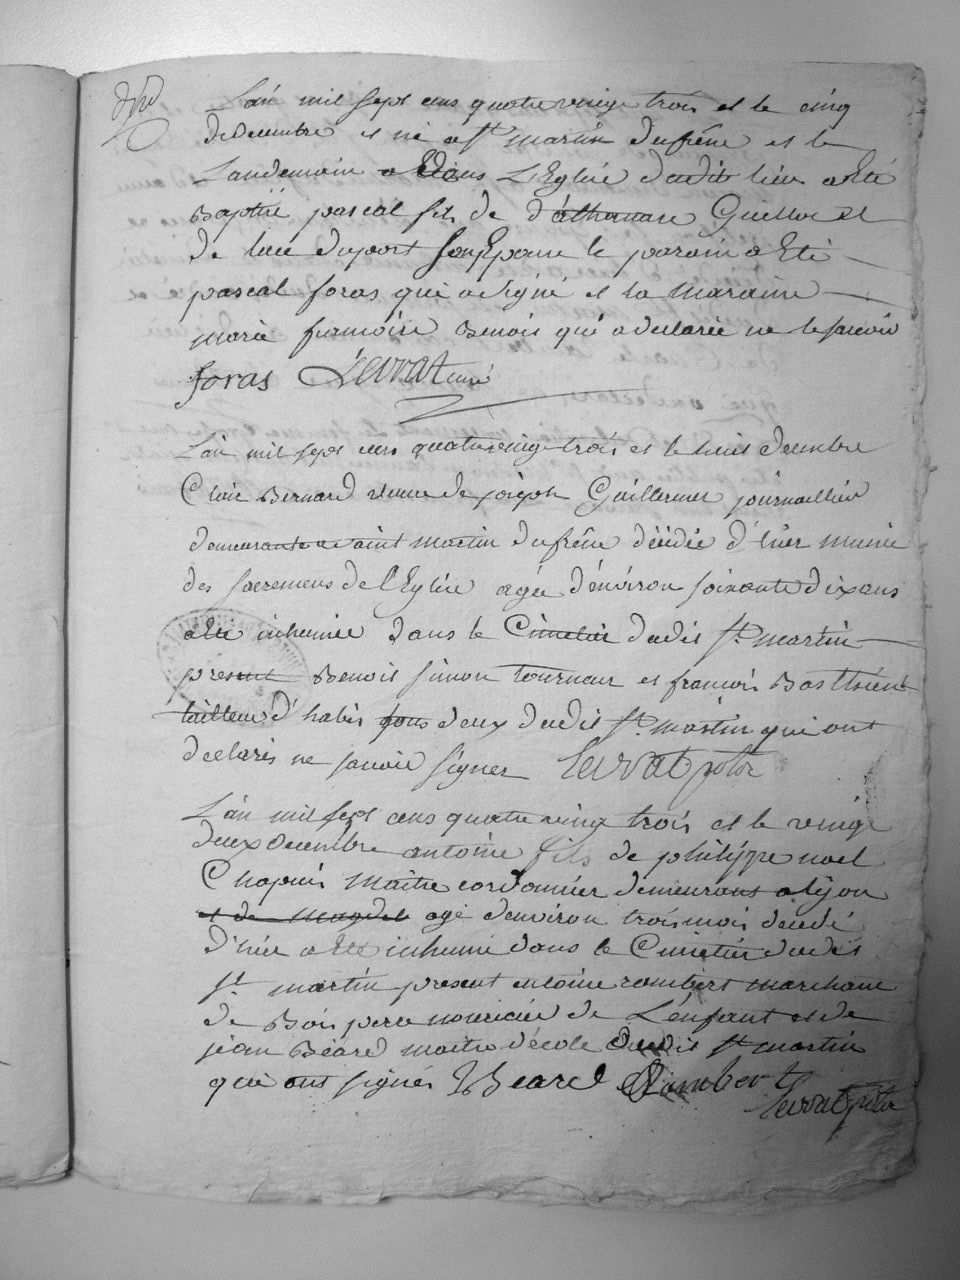 L'an mil sept cens quatre vingt trois et le cinq
decembre est né a St martin dufrêne et le
Landemain a dans L'Eglise dudit lieu a Eté
Baptisé pascal fils de d'athanase Guillot et
de luce duport son Epouse le parain a Eté
pascal foras qui a signé et la maraine
marie francoise Benoit qui a declarée ne le savoir
foras Levrat curé
L'an mil sept cens quatre vingt trois et le huit decembre
Clair Bernard veuve de joseph Guillermet journaillier
demeurante a saint martin dufrêne décédée d'hier munie
des sacremens de l'Eglise agée d'environ soixante dix ans
a ete inhumée dans le Cimetier dudit St martin
present Benoit simon tourneur et francois Basthient
tailleur d'habis tous deux dudit St martin qui ont
declarés ne savoir signer Levrat ptre
L'an mil sept cens quatre vingt trois et le vingt
deux decembre antoine fils de philippe noel
Chapuis Maitre cordonnier demeurant a lyon
et de Magdel agé d'environ trois mois decedé
d'hier a ete inhumé dans le Cimetier dudit
St martin present antoine rambert marchant
de Bois pere nouricier de L'enfant et de
jean Béard maitre d'école dudit St martin
qui ont signés Beard Rambert
Levrat ptre